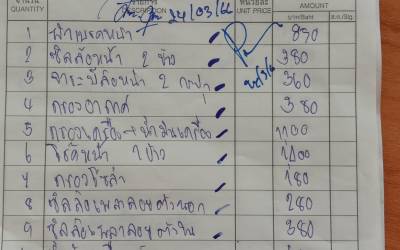 จำนวน QUANTITY รายการ DESCRIPTION หน่วยละ UNIT PRICE AMOUNT
24/03/66 บาท/Baht ส.ต./Stg.
1 ผ้าเบรคหน้า 850
2 ซีลล้อหน้า 2 ข้าง 380
3 จาระบีล้อหน้า 2 กะปุก 360
4 กรองอากาศ 380
5 กรองเครื่อง+น้ำมันเครื่อง 1100
6 โช้คหน้า 1 ข้าง 1400
7 กรองโซล่า 180
8 ซีลล้อเพลาลอยตัวนอก 280
9 ซีลล้อเพลาลอยตัวใน 380